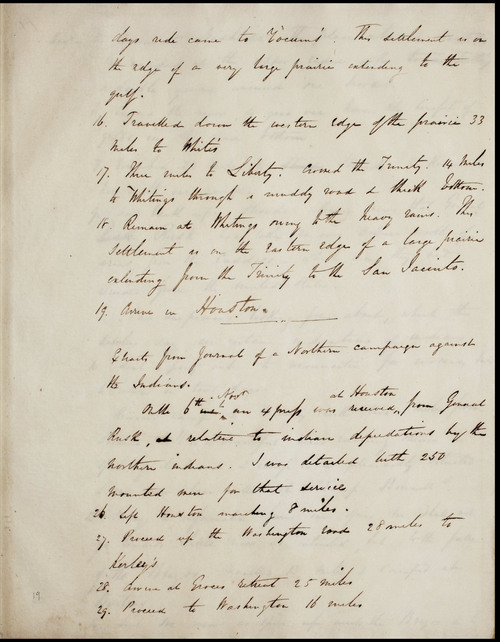 days ride came to Yocum's. This settlement is on
the edge of a very large prairie extending to the
gulf.
16. Travelled down the western edge of the prairie 33
miles to White's
17. Three miles to Liberty. Crossed the Trinity. 14 Miles
to Whitings through a muddy road & thick bottom.
18. Remain at Whitings owing to the heavy rains. This
settlement is on the eastern edge of a large prairie
extending from the Trinity to the San Jacinto.
19. Arrive in Houston.
Extracts from Journal of a Northern campaign against
the Indians.
On the 6th Novr an express was received at Houston from General
Rusk, relative to indian depredations by the
northern indians. I was detailed with 250
mounted men for that service
26. Left Houston marching 8 miles.
27. Proceed up the Washington road 28 miles to
Kerley's
28. Arrive at Groces retreat 25 miles
29. Proceed to Washington 16 miles
19